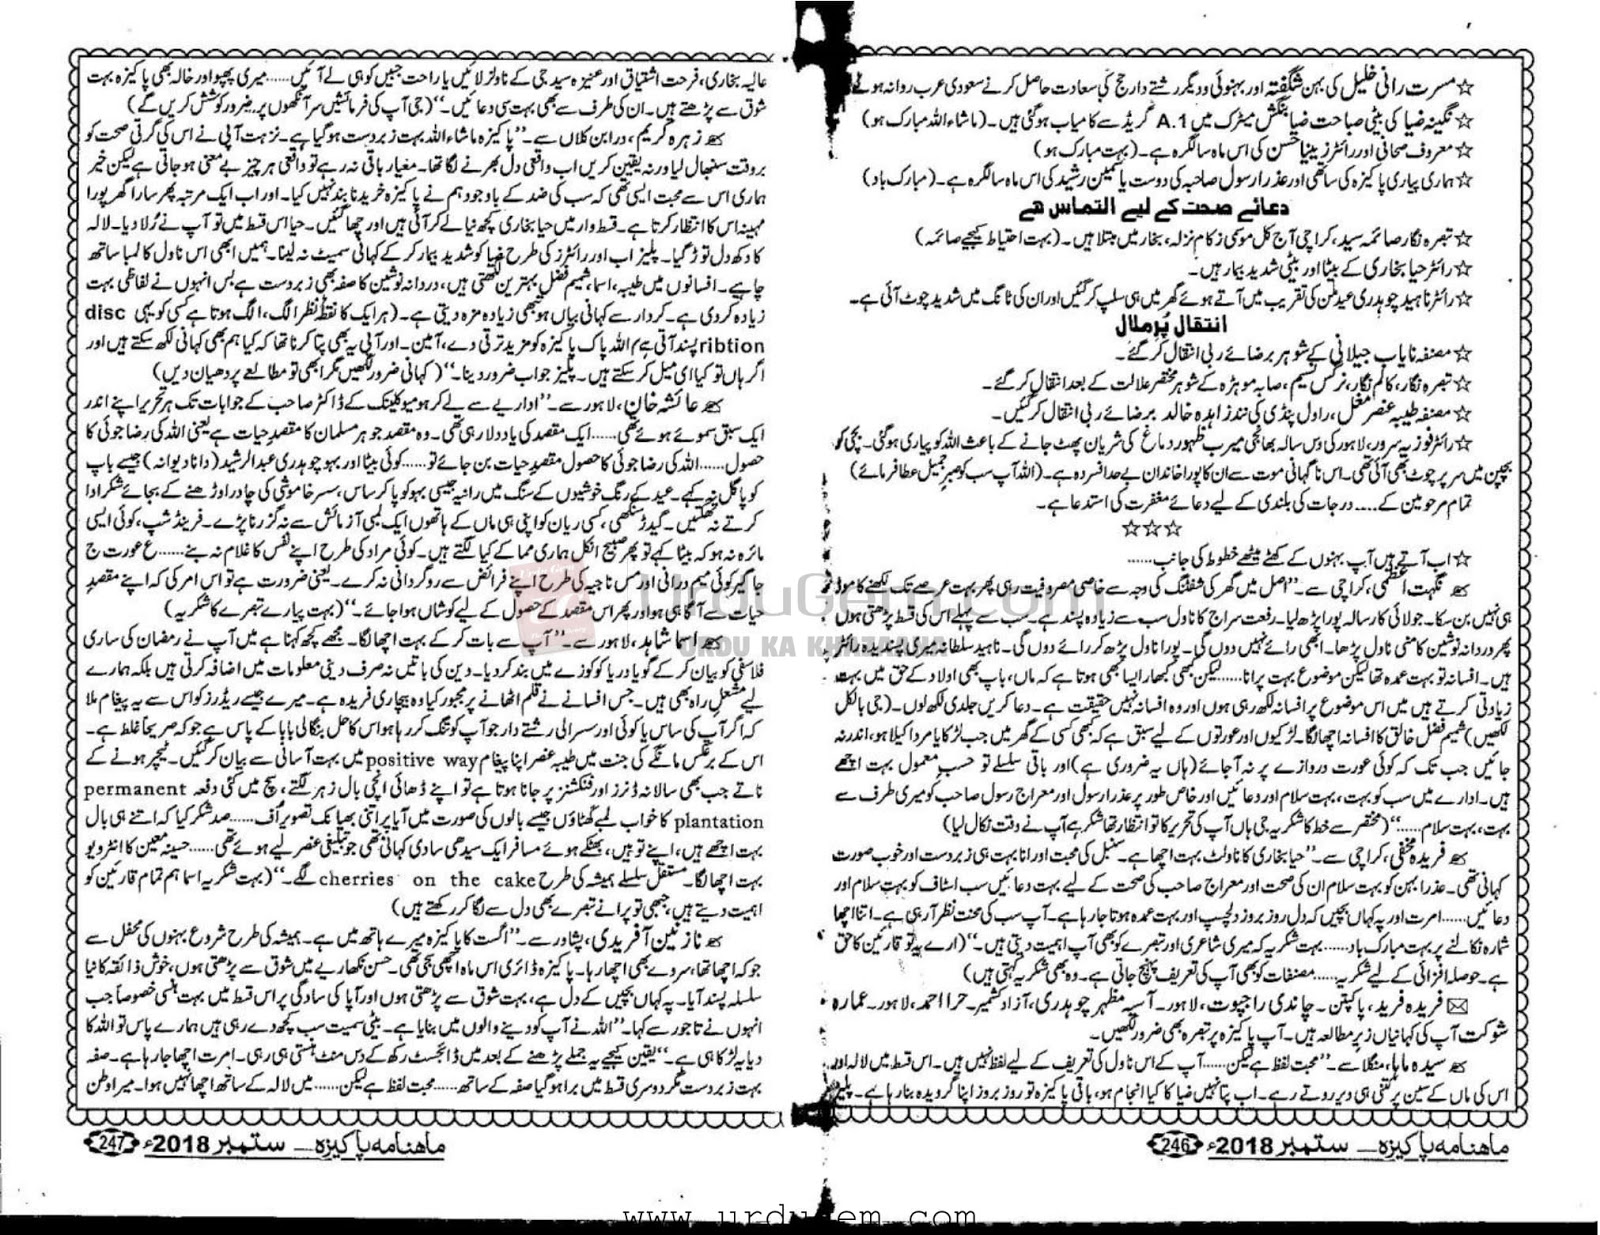 ☆ مسرت رانی خلیل کی بہن شگفتہ اور بہنوئی و دیگر رشتے دار حج کی سعادت حاصل کرنے سعودی عرب روانہ ہوئے
☆ نگینہ ضیا کی بیٹی صباحت ضیا بنگش میٹرک میں A.1 گریڈ سے کامیاب ہوگئی ہیں۔ (ماشاءاللہ مبارک ہو)
☆ معروف صحافی اور رائٹر زیبنا حسن کی اس ماہ سالگرہ ہے۔ (بہت مبارک ہو)
☆ ہماری پیاری پاکیزہ کی ساتھی اور عذرا رسول صاحبہ کی دوست یاسمین رشید کی اس ماہ سالگرہ ہے۔ (مبارک باد)
دعائے صحت کے لیے التماس ہے
☆ تبصرہ نگار صائمہ سید، کراچی آج کل موسمی زکام نزلہ، بخار میں مبتلا ہیں۔ (بہت احتیاط کیجیے صائمہ)
☆ رائٹر حیا بخاری کے بیٹا اور بیٹی شدید بیمار ہیں۔
☆ رائٹر ناہید چوہدری عید ملن کی تقریب میں آتے ہوئے گھر میں ہی سلپ کر گئیں اور ان کی ٹانگ میں شدید چوٹ آئی ہے۔
انتقال پُر ملال
☆ مصنفہ نایاب جیلانی کے شوہر برضائے ربی انتقال کر گئے۔
☆ تبصرہ نگار، کالم نگار، نرگس نسیم، صابہ موہڑہ کے شوہر مختصر علالت کے بعد انتقال کر گئے۔
☆ مصنفہ طیبہ عنصر مغل، راول پنڈی کی نند زاہدہ خالد برضائے ربی انتقال کر گئیں۔
☆ رائٹر فوزیہ سرور، لاہور کی دس سالہ بھانجی میرب ظہور دماغ کی شریان پھٹ جانے کے باعث اللہ کو پیاری ہوگئی۔ بچی کو
بچپن میں سر پر چوٹ بھی آئی تھی۔ اس ناگہانی موت سے ان کا پورا خاندان بے حد افسردہ ہے۔ (اللہ آپ سب کو صبر جمیل عطا فرمائے)
تمام مرحومین کے.... درجات کی بلندی کے لیے دعائے مغفرت کی استدعا ہے۔
☆☆☆
☆ اب آتے ہیں آپ بہنوں کے کھٹے میٹھے خطوط کی جانب......
نگہت اعظمی، کراچی سے۔ ”اصل میں گھر کی شفٹنگ کی وجہ سے خاصی مصروفیت رہی پھر بہت عرصے تک لکھنے کا موڈ
ہی نہیں بن سکا۔ جولائی کا رسالہ پورا پڑھ لیا۔ رفعت سراج کا ناول سب سے زیادہ پسند ہے۔ سب سے پہلے اس کی قسط پڑھتی ہوں
پھر دردانہ نوشین کا منی ناول پڑھا۔ ابھی رائے نہیں دوں گی۔ پورا ناول پڑھ کر رائے دوں گی۔ ناہید سلطانہ میری پسندیدہ رائٹر
ہیں۔ افسانہ تو بہت عمدہ تھا لیکن موضوع بہت پرانا...... لیکن کبھی کبھار ایسا بھی ہوتا ہے کہ ماں، باپ بھی اولاد کے حق میں بہت
زیادتی کرتے ہیں میں اس موضوع پر افسانہ لکھ رہی ہوں اور وہ افسانہ نہیں حقیقت ہے۔ دعا کریں جلدی لکھ لوں۔ (جی بالکل
لکھیں) شمیم فضل خالق کا افسانہ اچھا لگا۔ لڑکیوں اور عورتوں کے لیے سبق ہے کہ کبھی کسی کے گھر میں جب لڑکا یا مرد اکیلا ہو، اندر نہ
جائیں جب تک کہ کوئی عورت دروازے پر نہ آ جائے (ہاں یہ ضروری ہے) اور باقی سلسلے تو حسبِ معمول بہت اچھے
ہیں۔ ادارے میں سب کو بہت، بہت سلام اور دعائیں اور خاص طور پر عذرا رسول اور معراج رسول صاحب کو میری طرف سے
بہت، بہت سلام.....“ (مختصر سے خط کا شکریہ جی ہاں آپ کی تحریر کا تو انتظار تھا شکر ہے آپ نے وقت نکال لیا)
فریدہ مخفی، کراچی سے۔ ”حیا بخاری کا ناولٹ بہت اچھا ہے۔ سنبل کی محبت اور انا بہت ہی زبردست اور خوب صورت
کہانی تھی۔ عذرا بہن کو بہت سلام ان کی صحت اور معراج صاحب کی صحت کے لیے بہت دعائیں سب اسٹاف کو بہت سلام اور
دعائیں...... امرت اور یہ کہاں بچیں کہ دل روز بروز دلچسپ اور بہت عمدہ ہوتا جا رہا ہے۔ آپ سب کی محنت نظر آ رہی ہے۔ اتنا اچھا
شمارہ نکالنے پر بہت مبارک باد...... بہت شکریہ کہ میری شاعری اور تبصرے کو بھی آپ اہمیت دیتی ہیں۔“ (ارے یہ تو قارئین کا حق
ہے۔ حوصلہ افزائی کے لیے شکریہ..... مصنفات کو بھی آپ کی تعریف پہنچ جاتی ہے۔ وہ بھی شکریہ کہتی ہیں)
✉ فریدہ فرید، پاکپتن۔ چاندی راجپوت، لاہور۔ آسیہ مظہر چوہدری، آزاد کشمیر۔ حرا احمد، لاہور۔ عمارہ
شوکت آپ کی کہانیاں زیرِ مطالعہ ہیں۔ آپ پاکیزہ پر تبصرہ بھی ضرور لکھیں۔
سیدہ ماہا، منگلا سے۔ ”محبت لفظ ہے لیکن..... آپ کے اس ناول کی تعریف کے لیے لفظ نہیں ہیں۔ اس قسط میں لالہ اور
اس کی ماں کے سین پر کتنی ہی دیر روتے رہے۔ اب پتا نہیں ضیا کا کیا انجام ہو، باقی پاکیزہ تو روز بروز اپنا گرویدہ بنا رہا ہے۔ پلیز
ماهنامه پاکیزہ — ستمبر 2018ء 246
عالیہ بخاری، فرحت اشتیاق اور عنیزہ سید جی کے ناولز لائیں یا راحت جبیں کو ہی لے آئیں...... میری پھپو اور خالہ بھی پاکیزہ بہت
شوق سے پڑھتے ہیں۔ ان کی طرف سے بھی بہت سی دعائیں۔“ (جی آپ کی فرمائشیں سر آنکھوں پر، ضرور کوشش کریں گے)
زہرہ کریم، درابن کلاں سے۔ ”پاکیزہ ماشاءاللہ بہت زبردست ہو گیا ہے۔ نزہت آپی نے اس کی گرتی صحت کو
بروقت سنبھال لیا ورنہ یقین کریں اب واقعی دل بھرنے لگا تھا۔ معیار باقی نہ رہے تو واقعی ہر چیز بے معنی ہو جاتی ہے لیکن خیر
ہماری اس سے محبت ایسی تھی کہ سب کی ضد کے باوجود ہم نے پاکیزہ خریدنا بند نہیں کیا۔ اور اب ایک مرتبہ پھر سارا گھر پورا
مہینہ اس کا انتظار کرتا ہے۔ قسط وار میں حیا بخاری کچھ نیا لے کر آئی ہیں اور چھا گئیں۔ حیا اس قسط میں تو آپ نے رُلا دیا۔ لالہ
کا دکھ دل توڑ گیا۔ پلیز اب اور رائٹرز کی طرح ضیا کو شدید بیمار کر کے کہانی سمیٹ نہ لینا۔ ہمیں ابھی اس ناول کا لمبا ساتھ
چاہیے۔ افسانوں میں طیبہ، اسما، شمیم فضل بہترین لکھتی ہیں، دردانہ نوشین کا صفہ بھی زبردست ہے بس انہوں نے لفاظی بہت
زیادہ کر دی ہے۔ کردار سے کہانی بیاں ہو بھی زیادہ مزہ دیتی ہے۔ (ہر ایک کا نقطۂ نظر الگ، الگ ہوتا ہے کسی کو یہی disc
ribtion پسند آتی ہے) اللہ پاک پاکیزہ کو مزید ترقی دے، آمین۔ اور آپی یہ بھی پتا کرنا تھا کہ کیا ہم بھی کہانی لکھ سکتے ہیں اور
اگر ہاں تو کیا ای میل کر سکتے ہیں۔ پلیز جواب ضرور دینا۔“ (کہانی ضرور لکھیں مگر ابھی تو مطالعے پر دھیان دیں)
عائشہ خان، لاہور سے۔ ”اداریے سے لے کر ہومیو کلینک کے ڈاکٹر صاحب کے جوابات تک ہر تحریر اپنے اندر
ایک سبق سموئے ہوئے تھی...... ایک مقصد کی یاد دلا رہی تھی۔ وہ مقصد جو ہر مسلمان کا مقصدِ حیات ہے یعنی اللہ کی رضا جوئی کا
حصول...... اللہ کی رضا جوئی کا حصول مقصدِ حیات بن جائے تو..... کوئی بیٹا اور بہو چوہدری عبدالرشید (دانا دیوانہ) جیسے باپ
کو پاگل نہ کہے۔ عید کے رنگ خوشیوں کے سنگ میں رانیہ جیسی بہو کو پا کر ساس، سسر خاموشی کی چادر اوڑھنے کے بجائے شکر ادا
کرتے نہ تھکتیں۔ گیدڑ سنگھی، کسی ریان کو اپنی ہی ماں کے ہاتھوں ایک لمبی آزمائش سے نہ گزرنا پڑے۔ فرینڈ شپ، کوئی ایسی
مائرہ نہ ہو کہ بیٹا کہے تو پھر صبیح انکل ہماری مما کے کیا لگتے ہیں۔ کوئی مراد کی طرح اپنے نفس کا غلام نہ بنے...... ع عورت ج
جاگیر کوئی میم درانی اور مس ناجیہ کی طرح اپنے فرائض سے روگردانی نہ کرے۔ یعنی ضرورت ہے تو اس امر کی کہ اپنے مقصدِ
حیات سے آگاہی ہو اور پھر اس مقصد کے حصول کے لیے کوشاں ہوا جائے۔“ (بہت پیارے تبصرے کا شکریہ)
اسما شاہد، لاہور سے۔ ”آپ سے بات کر کے بہت اچھا لگا۔ مجھے کچھ کہنا ہے میں آپ نے رمضان کی ساری
فلاسفی کو بیان کر کے گویا دریا کو کوزے میں بند کر دیا۔ دین کی باتیں نہ صرف دینی معلومات میں اضافہ کرتی ہیں بلکہ ہمارے
لیے مشعلِ راہ بھی ہیں۔ جس افسانے نے قلم اٹھانے پر مجبور کیا وہ بیچاری فریدہ ہے۔ میرے جیسے ریڈرز کو اس سے یہ پیغام ملا
کہ اگر آپ کی ساس یا کوئی اور سسرالی رشتے دار جو آپ کو تنگ کر رہا ہو اس کا حل بنگالی بابا کے پاس ہے جو کہ صریحاً غلط ہے۔
اس کے برعکس مانگے کی جنت میں طیبہ عنصر اپنا پیغام positive way میں بہت آسانی سے بیان کر گئیں۔ ٹیچر ہونے کے
ناتے جب بھی سالانہ ڈنرز اور فنکشنز پر جانا ہوتا ہے تو اپنے ڈھائی انچی بال زہر لگتے، سچ میں کئی دفعہ permanent
plantation کا خواب لمبے گھٹاؤں جیسے بالوں کی صورت میں آیا پر اتنی بھیانک تصویر اُف...... صد شکر کیا کہ اتنے ہی بال
بہت اچھے ہیں، اپنے تو ہیں، بھٹکے ہوئے مسافر ایک سیدھی سادی کہانی تھی جو تبلیغی عنصر لیے ہوئے تھی...... حسینہ معین کا انٹرویو
بہت اچھا لگا۔ مستقل سلسلے ہمیشہ کی طرح cherries on the cake لگے۔“ (بہت شکریہ اسما ہم تمام قارئین کو
اہمیت دیتے ہیں، جبھی تو پرانے تبصرے بھی دل سے لگا کر رکھتے ہیں)
نازنین آفریدی، پشاور سے۔ ”اگست کا پاکیزہ میرے ہاتھ میں ہے۔ ہمیشہ کی طرح شروع بہنوں کی محفل سے
جو کہ اچھا تھا، سروے بھی اچھا رہا۔ پاکیزہ ڈائری اس ماہ اچھی سجی تھی۔ حسن نکھاریے میں شوق سے پڑھتی ہوں، خوش ذائقہ کا نیا
سلسلہ پسند آیا۔ یہ کہاں بچیں کے دل ہے، بہت شوق سے پڑھتی ہوں اور آپا کی سادگی پر اس قسط میں بہت ہنسی خصوصاً جب
انہوں نے تاجور سے کہا۔ ”اللہ نے آپ کو دینے والوں میں بنایا ہے۔ بیٹی سمیت سب کچھ دے رہی ہیں ہمارے پاس تو اللہ کا
دیا یہ لڑکا ہی ہے۔“ یقین کیجیے یہ جملے پڑھنے کے بعد میں ڈائجسٹ رکھ کے دس منٹ ہنستی ہی رہی۔ امرت اچھا جا رہا ہے۔ صفہ
بہت زبردست مگر دوسری قسط میں برا ہو گیا صفہ کے ساتھ..... محبت لفظ ہے لیکن...... میں لالہ کے ساتھ اچھا نہیں ہوا۔ میرا وطن
ماهنامه پاکیزہ — ستمبر 2018ء 247
UrduGem.com
URDU KA KHAZAANA
www.urdugem.com